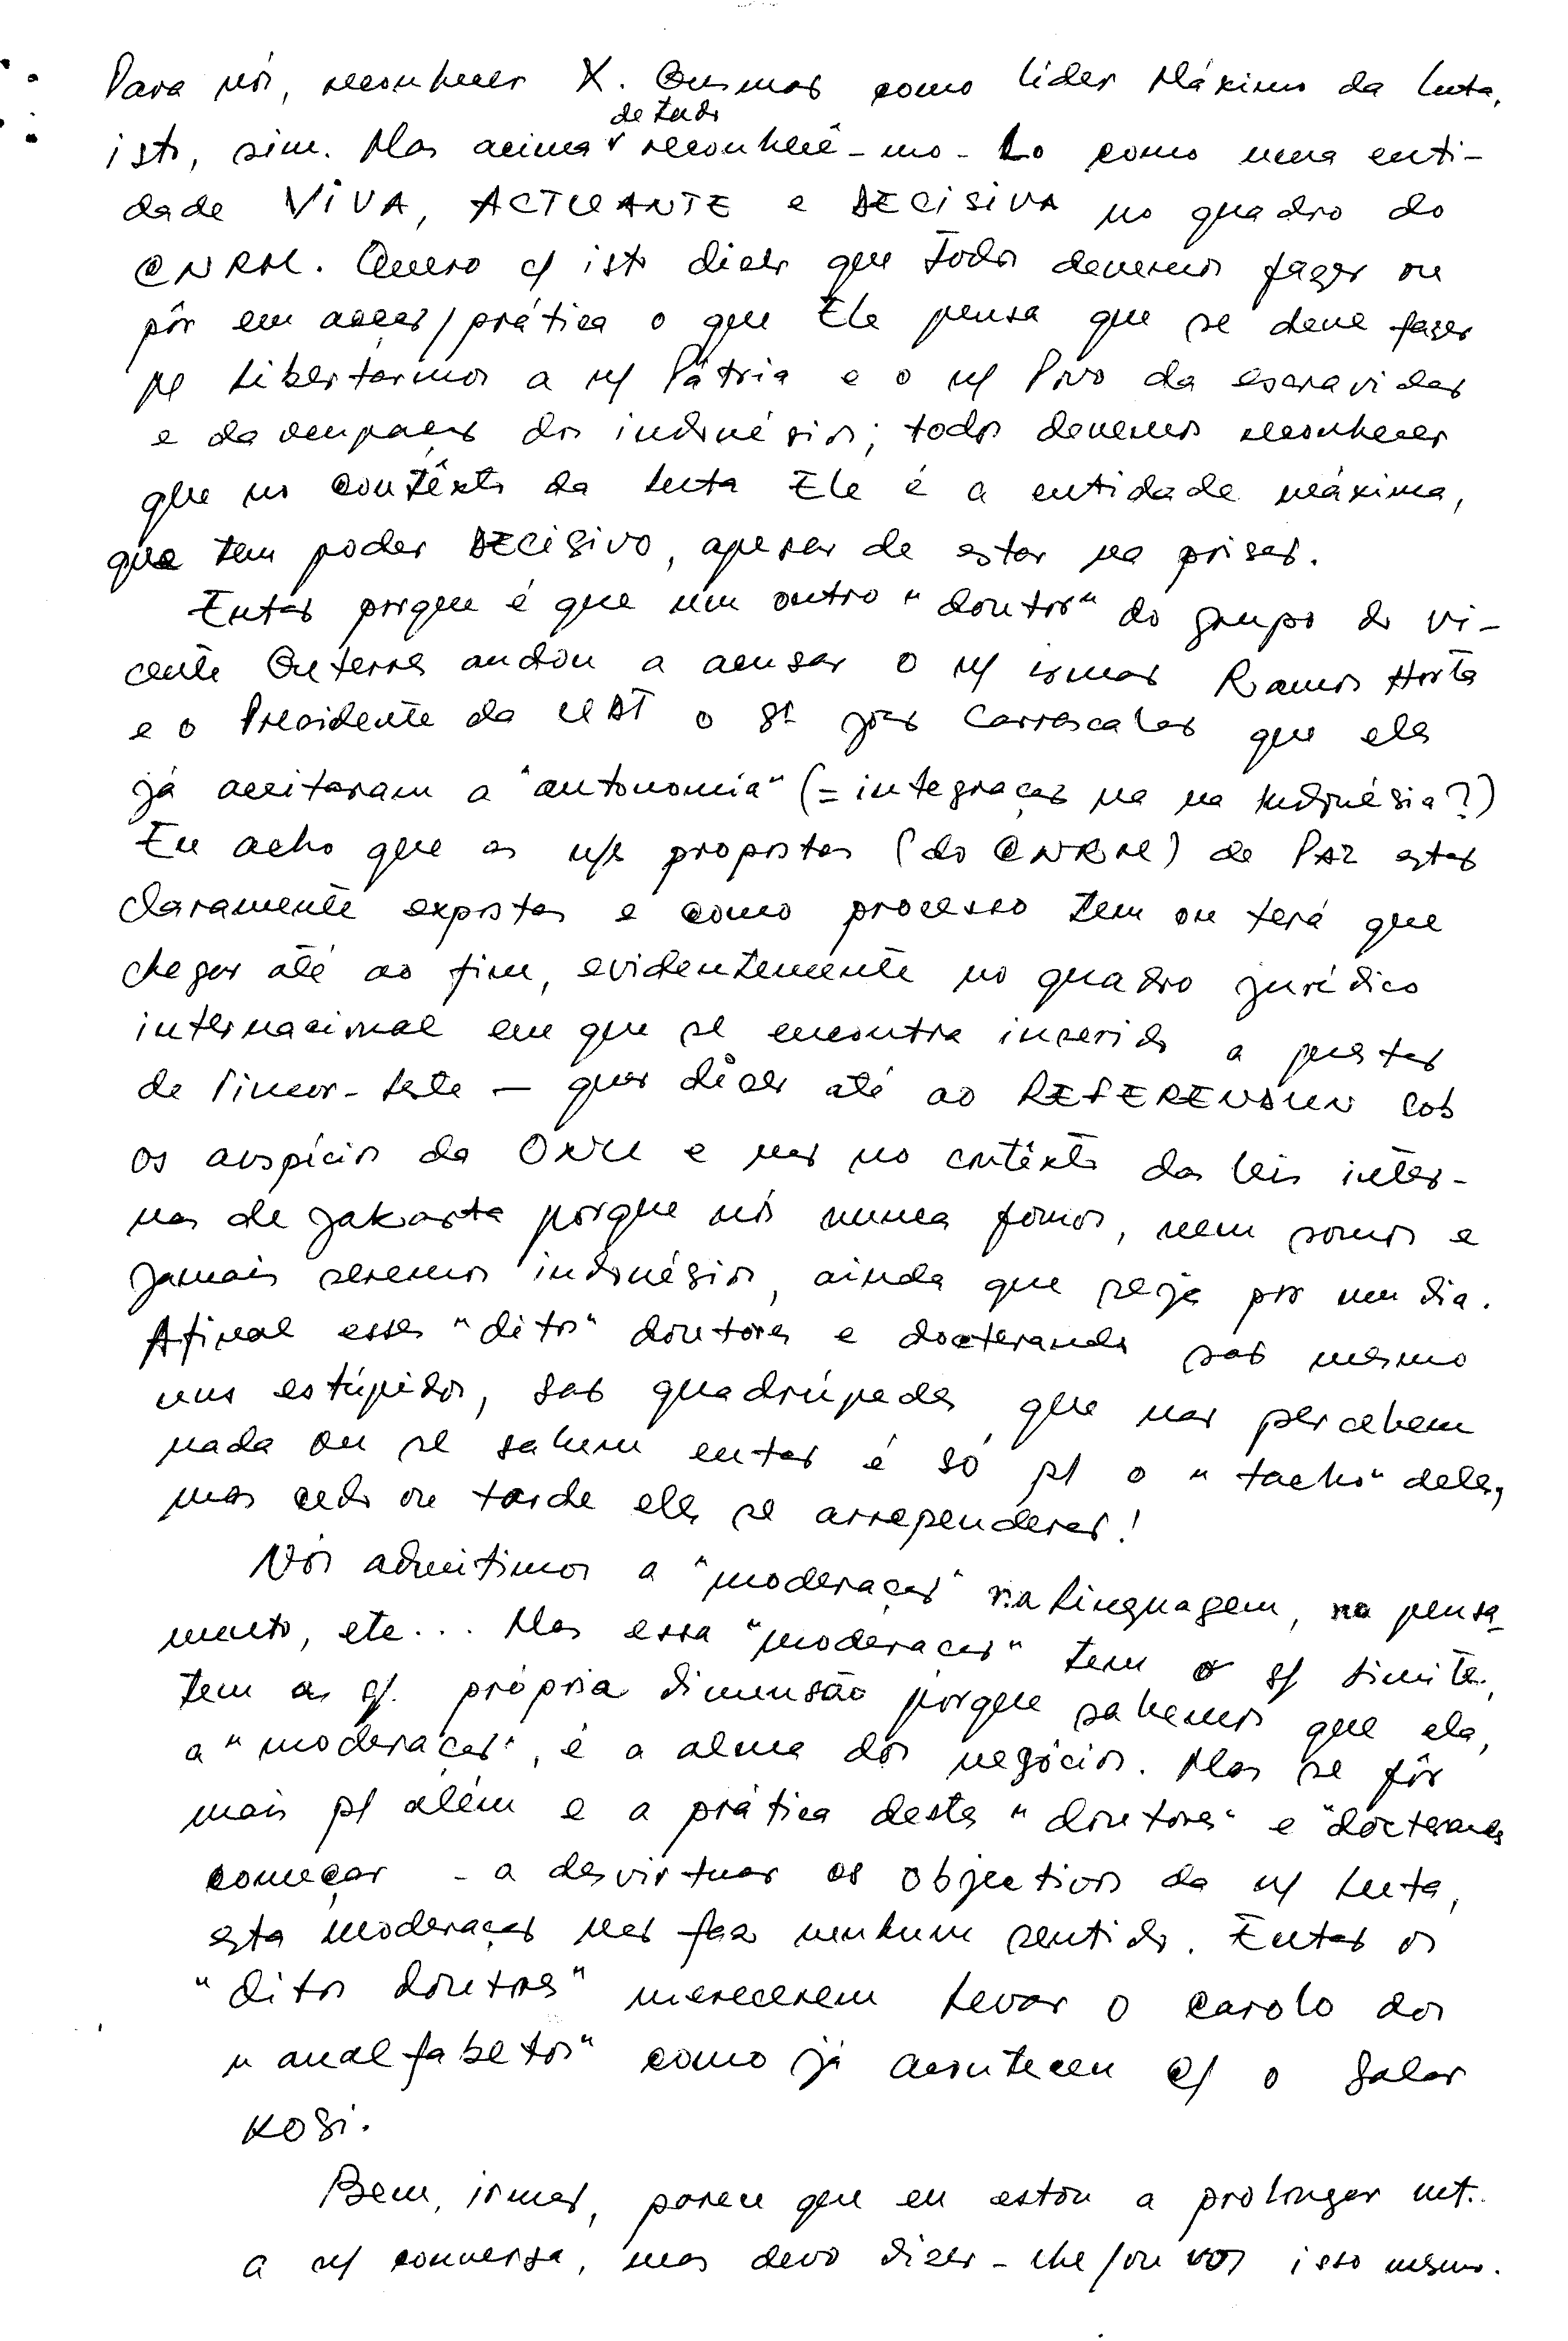 Para nós, reconhecer X. Gusmão como líder Máximo da luta,
isto, sim. Mas acima de tudo reconhecê-mo-Lo como uma enti-
dade VIVA, ACTUANTE e DECISIVA no quadro do
CNRM. Quero c/ isto dizer que todos devemos fazer ou
pôr em acção/prática o que Ele pensa que se deve fazer
p/ Libertarmos a n/ Pátria e o n/ Povo da escravidão
e da ocupação dos indonésios; todos devemos reconhecer
que no contêxto da luta Ele é a entidade máxima,
que tem poder DECISIVO, apesar de estar na prisão.
Então porque é que um outro "doutor" do grupo do Vi-
cente Guterres andou a acusar o n/ irmão Ramos Horta
e o Presidente da UDT o Sr João Carrascalão que eles
já aceitaram a "autonomia" (= integração na na Indonésia?)
Eu acho que as n/s propostas (do CNRM) de PAZ estão
claramente expostas e como processo tem ou terá que
chegar até ao fim, evidentemente no quadro jurídico
internacional em que se encontra inserido a questão
de Timor-Leste — quer dizer até ao REFERENDUN sob
os auspícios da ONU e não no contêxto das leis inter-
nas de Jakarta porque nós nunca fomos, nem somos e
jamais seremos indonésios, ainda que seja por um dia.
Afinal esses "ditos" doutores e docterandos são mesmo
uns estúpidos, são quadrúpedes que não percebem
nada ou se sabem então é só p/ o "tacho" deles,
mas cedo ou tarde eles se arrependerão!
Nós admitimos a "moderação" na linguagem, no pensa-
mento, etc... Mas essa "moderação" tem o s/ limite,
tem a s/. própria dimensão porque sabemos que ela,
a "moderação", é a alma dos negócios. Mas se fôr
mais p/ além e a prática destes "doutores" e "docterandos
começar - a desvirtuar os objectivos da n/ luta,
esta moderação não faz nenhum sentido. Então os
"ditos doutores" merecerem levar o carolo dos
"analfabetos" como já aconteceu c/ o Salar
Kosi.
Bem, irmão, parece que eu estou a prolongar mt.
a n/ conversa, mas devo dizer-lhe/ou vos isso mesmo.